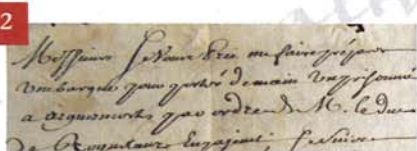 2
Messieurs Je Vous Prie me faire preparer
Une barque pour porter demain Un prisonnié
a aiguemorte par ordre de M. le duc
de Roquelaure